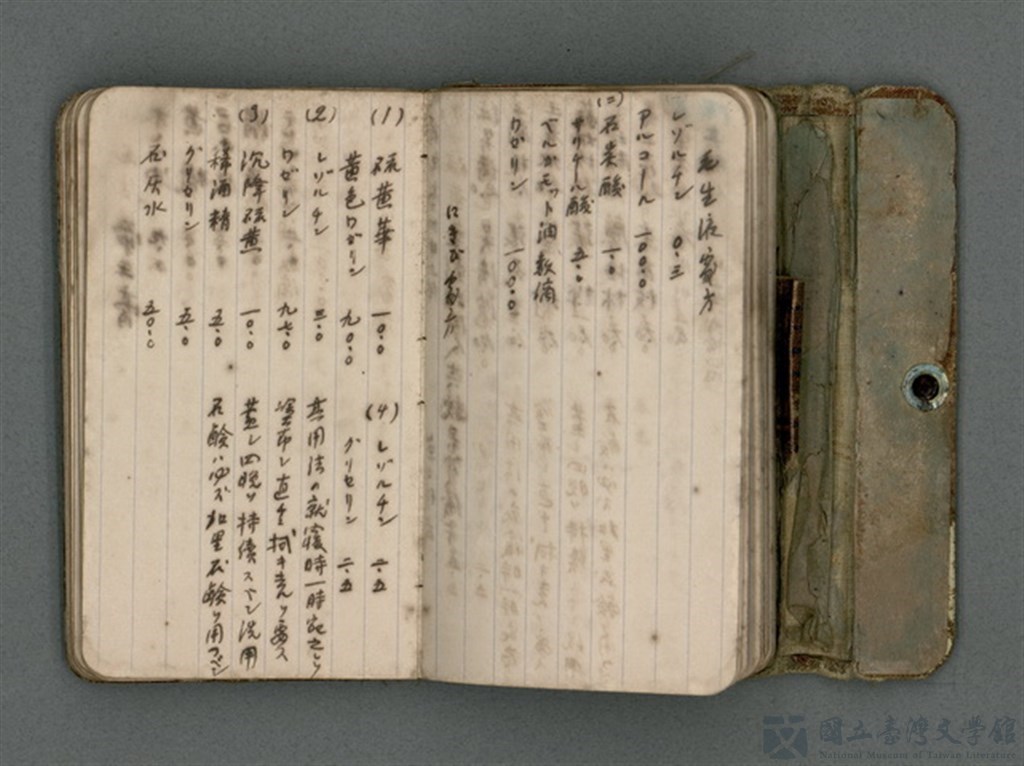 毛生液處方
レゾルチン 〇・三
アルコール 一〇〇・〇
(二) 石炭酸 一・〇
サリチール酸 五・〇
ベルガモット油 数滴
ワゼリン 一〇〇・〇
にきび處方
(1) 硫黄華 一〇・〇
黄色ワゼリン 九〇・〇
(2) レゾルチン 三・〇
ワゼリン 九七・〇
(3) 沉降硫黄 一〇・〇
稀酒精 五・〇
グリセリン 五・〇
石灰水 五〇・〇
(4) レゾルチン 二・五
グリセリン 二・五
其用法ハ就寝時一時
塗布シ直チニ拭キ去ルヲ要ス
蓋シ四晩ヲ持續スベシ洗用
石鹸ハ必ズ加里石鹸ヲ用フベシ
國立臺灣文學館
National Museum of Taiwan Literature